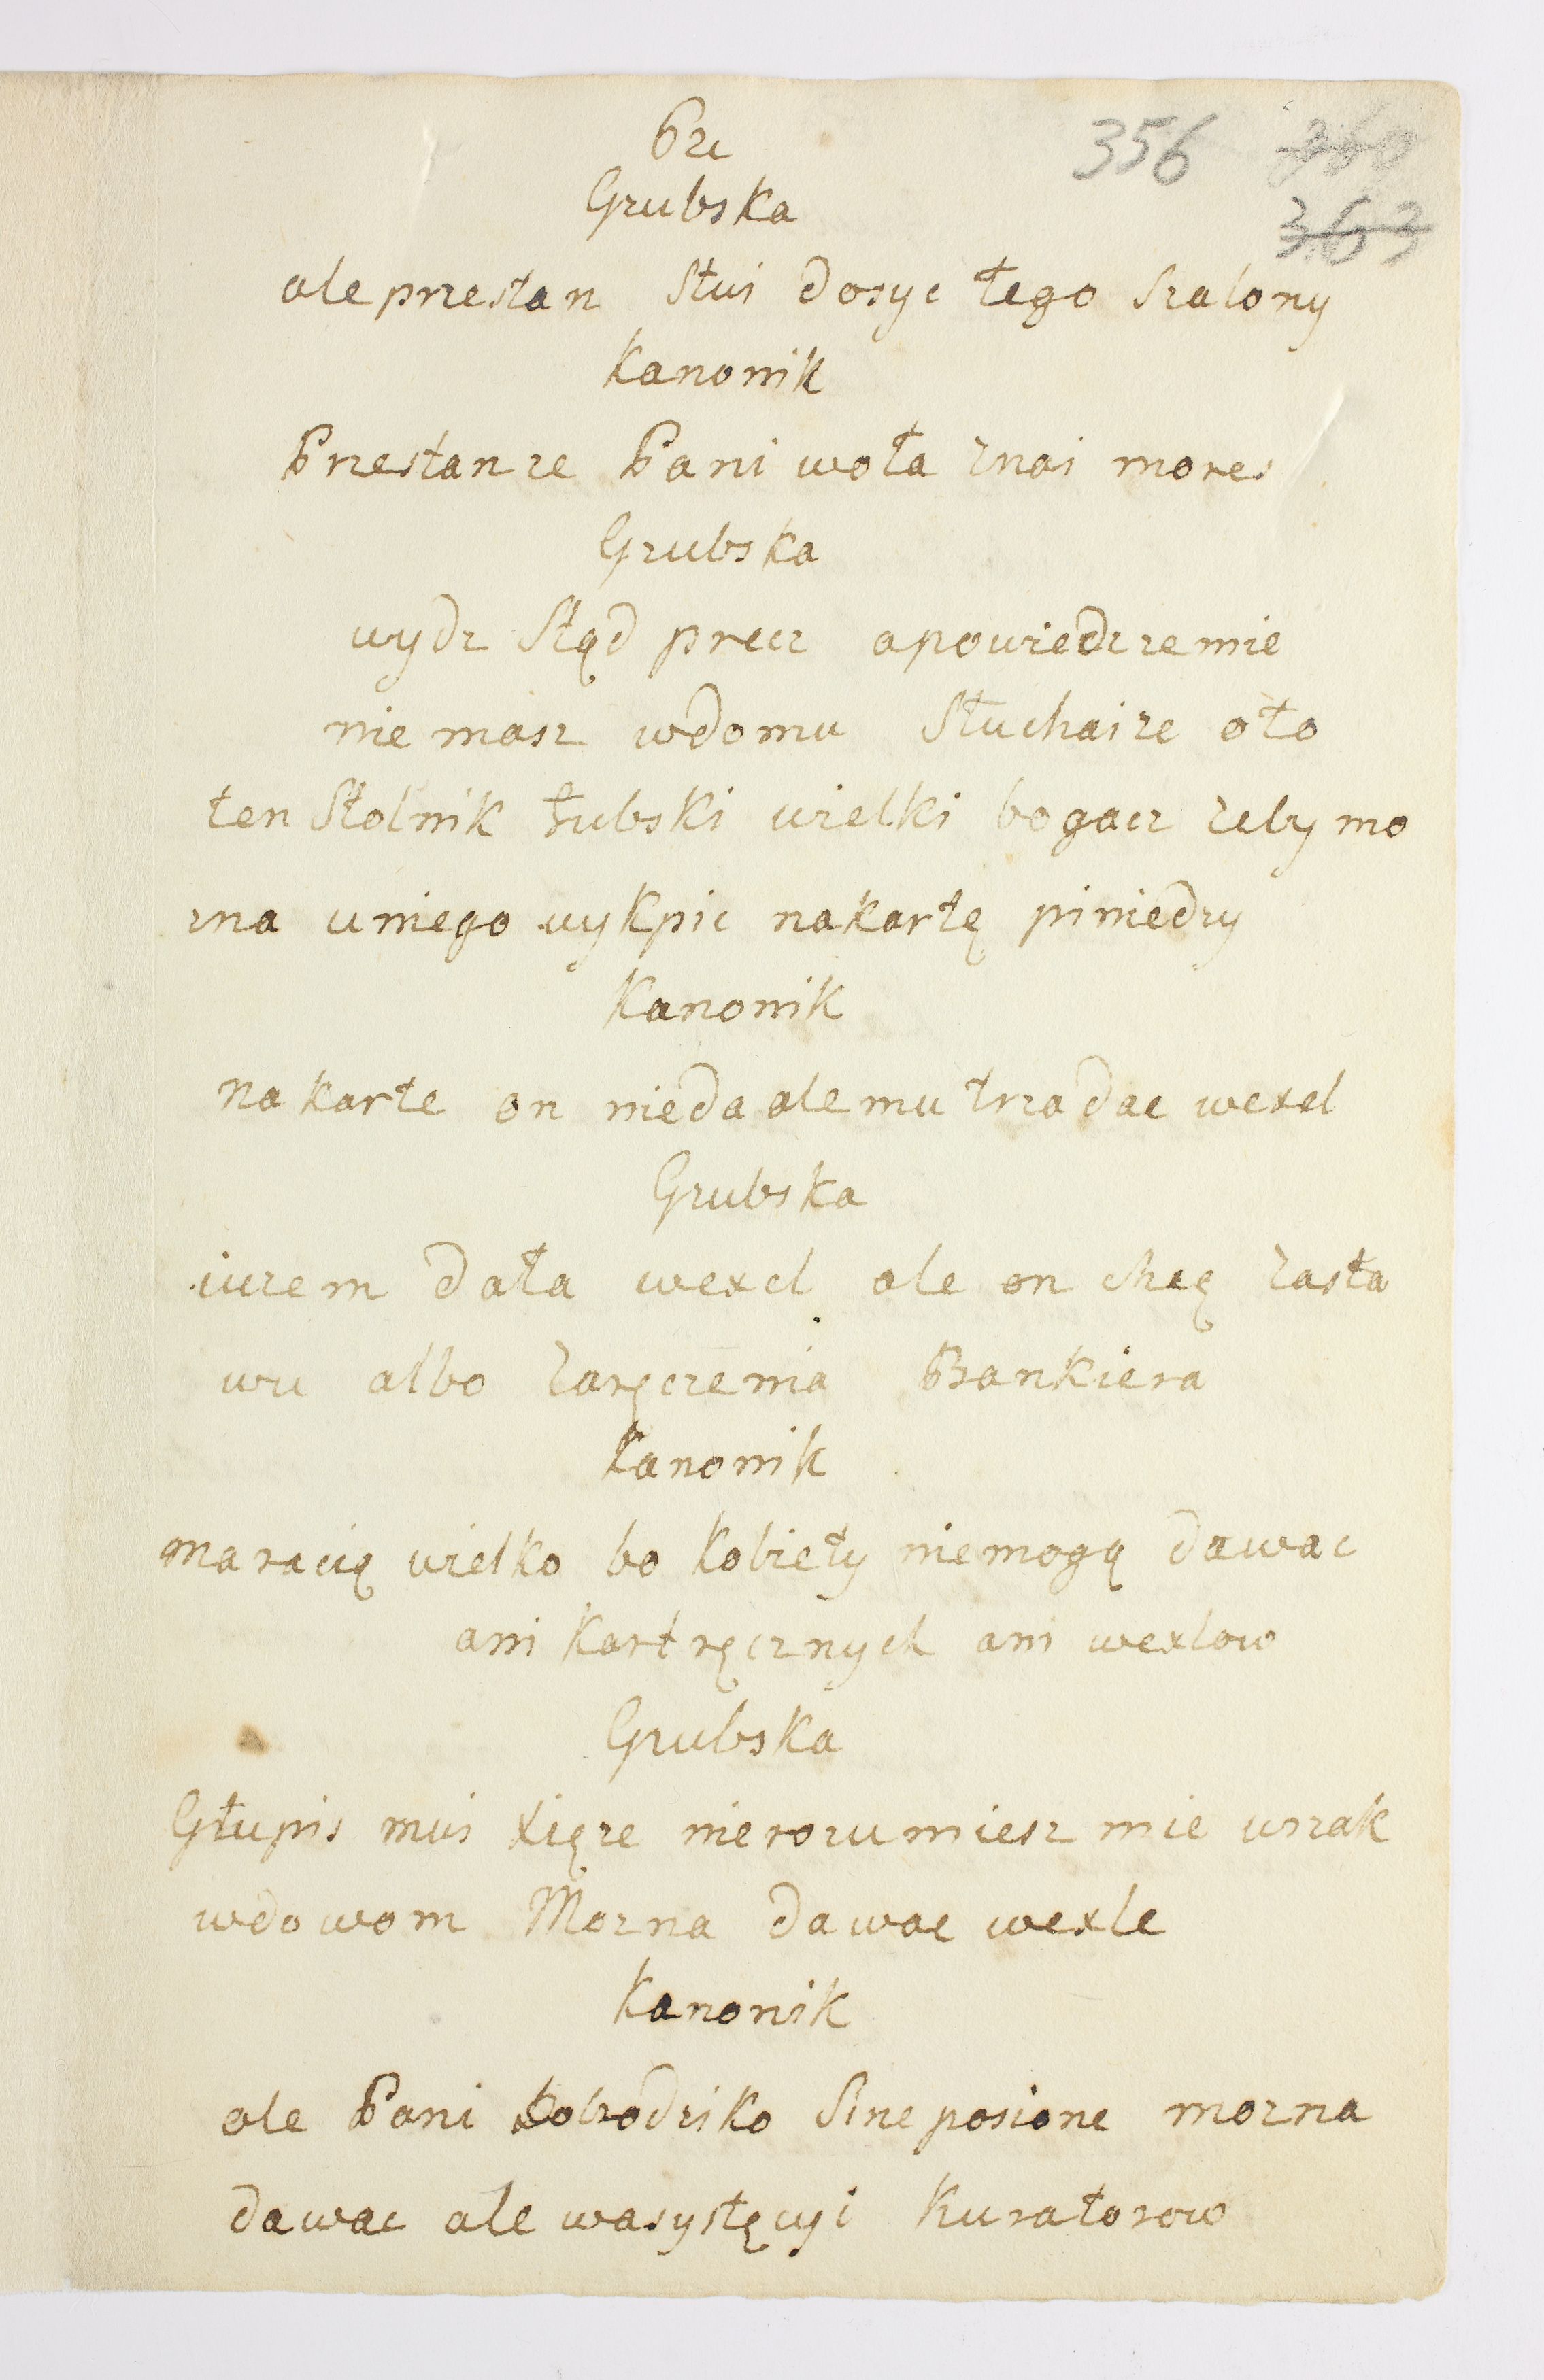 Prc 356 360
363
Grubska
ale przestan Stui dosyc tego Szalony
Kanonik
Przestanze Pani woła znai mores
Grubska
wydz Stąd precz apowiedzzemie
nie masz wdomu Słuchaize oto
ten Stolnik Łubski wielki bogacz zeby mo
zna uniego wykpic nakartę piniedzy
Kanonik
na karte on nieda ale mu trza dac wexel
Grubska
iuzem dała wexel ale on chcę zasta
wu albo zaręczenia Bankiera
Kanonik
ma racią wielko bo kobiety niemogą dawac
ani kart ręcznych ani wexlow
Grubska
Głupis mui xięze nierozumiesz mie wszak
wdowom Mozna dawac wexle
Kanonik
ale Pani Dobrodziko Sine posione mozna
dawac ale wasystęcyi Kuratorow